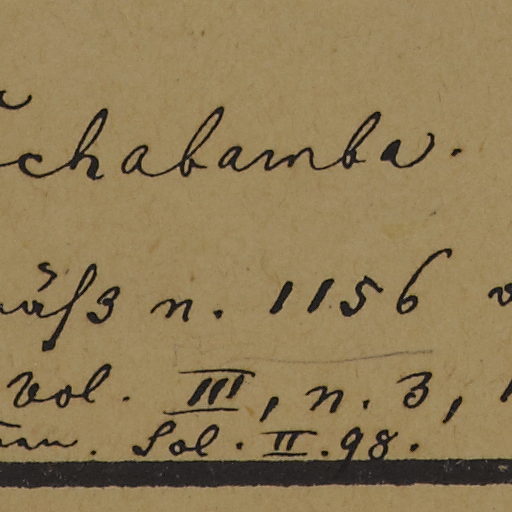 chabamba.
n. 1156
Vol. III, n. 3,
Sol. II. 98.